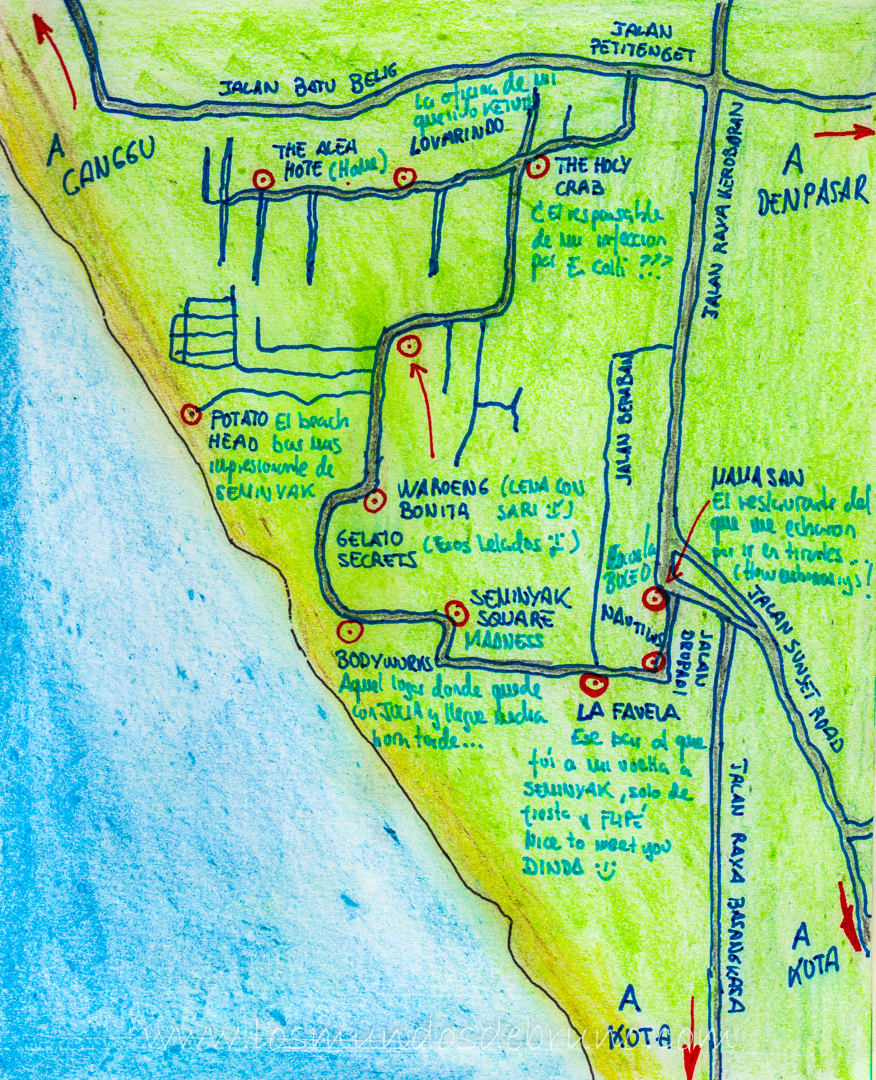 JALAN
PETITENGET
JALAN BATU BELIG
La oficina de mi
querido KETUT
LOVARINDO
A
CANGGU
THE ALEA
HOTE (Home)
THE HOLY
CRAB
¿El responsable
de mi infeccion
por E. Colli ???
A
DENPASAR
JALAN RAYA KEROBOKAN
POTATO El beach
HEAD bar mas
impresionante de
SEMINYAK
JALAN BEMBAN
WAROENG (CENA CON
BONITA SARI :))
GELATO (Esos helados :))
SECRETS
MAMASAN
El restaurante del
que me echaron
por ir en tirantes...
(How embarrasing)!
Escuela
BUCEO
NAUTILUS
SEMINYAK
SQUARE
MADNESS
BODYWORKS
Aquel lugar donde quede
con JULIA y llegue media
hora tarde...
JALAN
DRUPADI
JALAN SUNSET ROAD
LA FAVELA
Ese bar al que
fui a mi vuelta a
SEMINYAK, solo de
fiesta y FLIPÉ
Nice to meet you
DINDA :)
JALAN RAYA BASANGKASA
A
KUTA
A
KUTA
www.losmundosdebruno.com